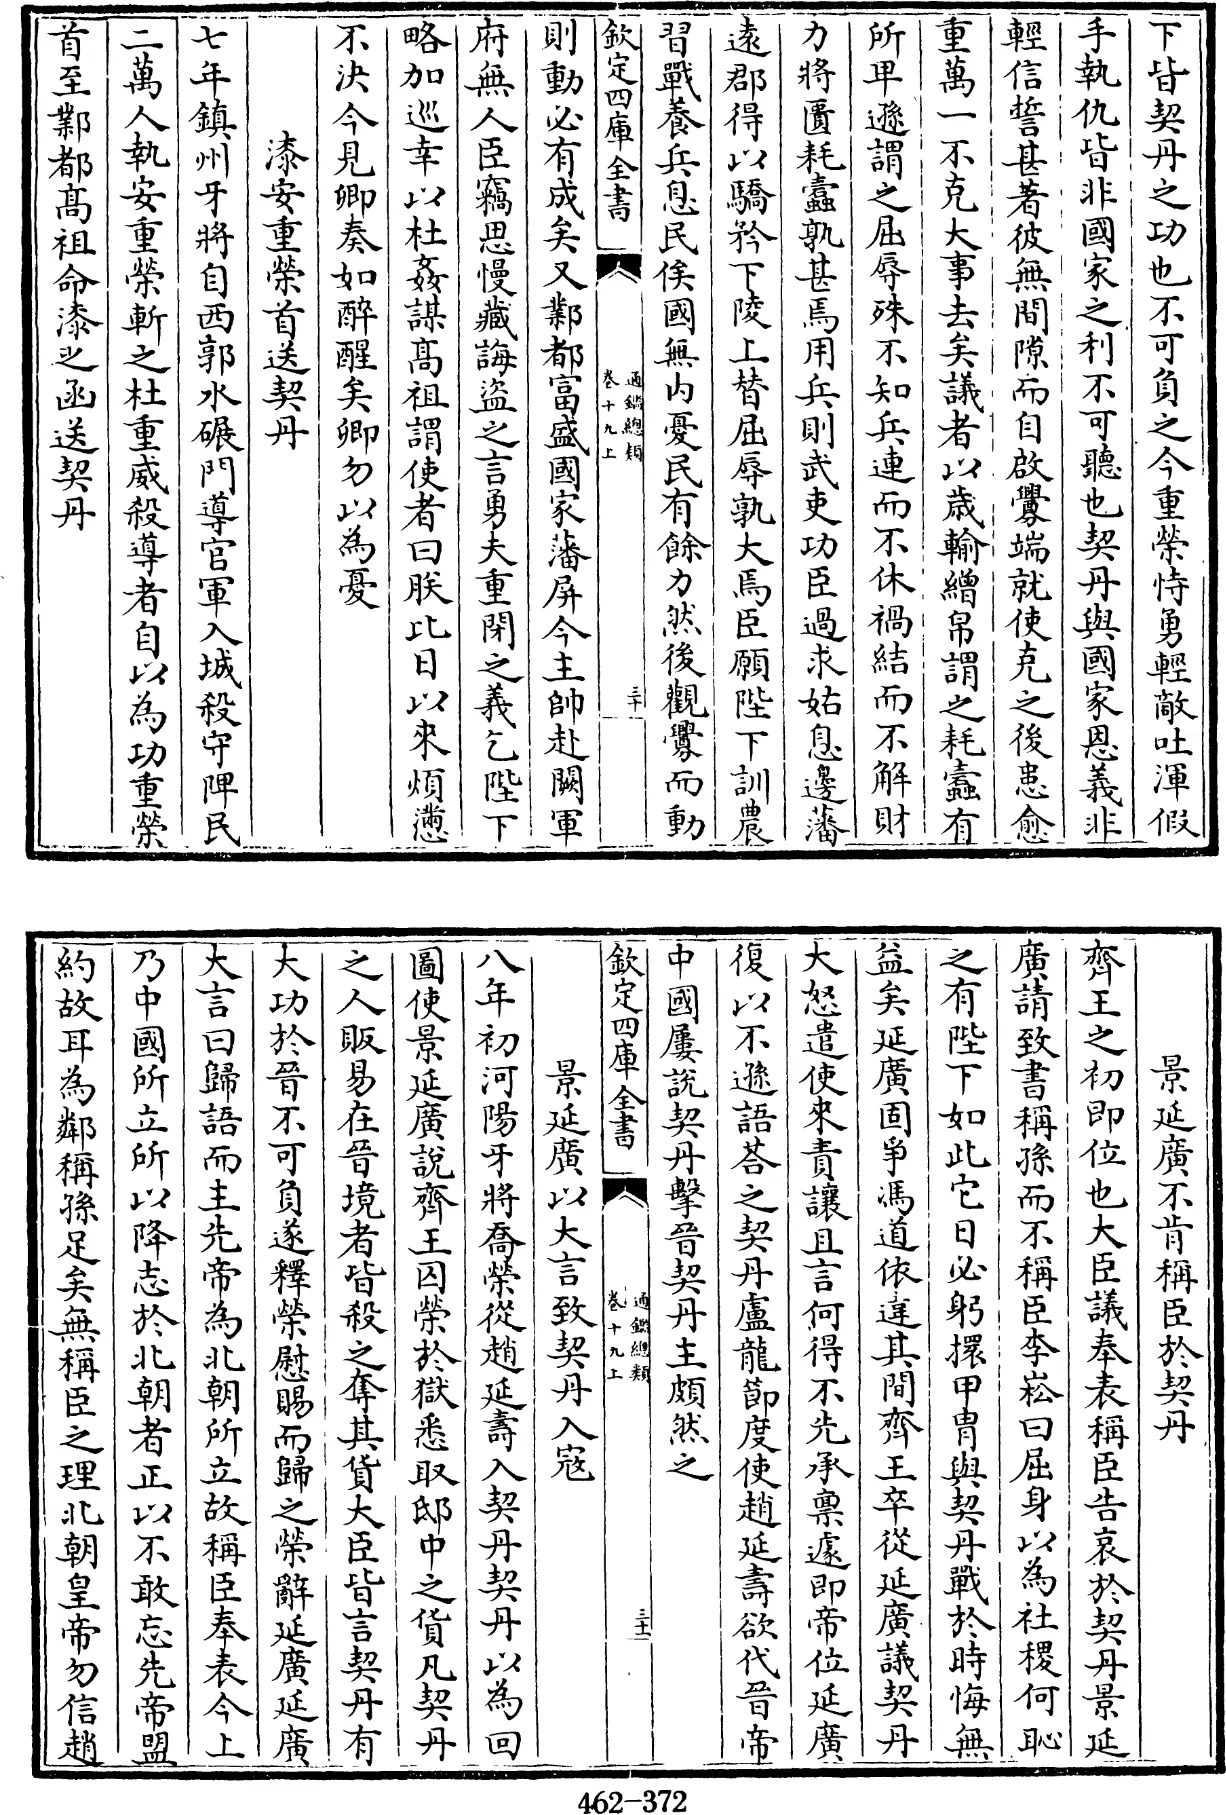 下皆契丹之功也不可負之今重榮恃勇輕敵吐渾假
手執仇皆非國家之利不可聽也契丹與國家恩義非
輕信誓甚著彼無間隙而自啟釁端就使克之後患愈
重萬一不克大事去矣議者以歲輸繒帛謂之耗蠹有
所卑遜謂之屈辱殊不知兵連而不休禍結而不解財
力將匱耗蠹孰甚焉用兵則武吏功臣過求姑息邊藩
遠郡得以驕矜下陵上替屈辱孰大焉臣願陛下訓農
習戰養兵息民俟國無內憂民有餘力然後觀釁而動
欽定四庫全書
通鑑總類
卷十九上
三十
則動必有成矣又鄴都富盛國家藩屏今主帥赴闕軍
府無人臣竊思慢藏誨盜之言勇夫重閉之義乞陛下
略加巡幸以杜姦謀高祖謂使者曰朕比日以來煩懣
不決今見卿奏如醉醒矣卿勿以為憂
漆安重榮首送契丹
七年鎮州牙將自西郭水碾門導官軍入城殺守陴民
二萬人執安重榮斬之杜重威殺導者自以為功重榮
首至鄴都高祖命漆之函送契丹
景延廣不肯稱臣於契丹
齊王之初即位也大臣議奉表稱臣告哀於契丹景延
廣請致書稱孫而不稱臣李崧曰屈身以為社稷何恥
之有陛下如此它日必躬擐甲冑與契丹戰於時悔無
益矣延廣固爭馮道依違其間齊王卒從延廣議契丹
大怒遣使來責讓且言何得不先承稟遽即帝位延廣
復以不遜語荅之契丹盧龍節度使趙延壽欲代晉帝
中國屢說契丹擊晉契丹主頗然之
欽定四庫全書
通鑑總類
卷十九上
三十一
景延廣以大言致契丹入寇
八年初河陽牙將喬榮從趙延壽入契丹契丹以為回
圖使景延廣說齊王囚榮於獄悉取邸中之貨凡契丹
之人販易在晉境者皆殺之奪其貨大臣皆言契丹有
大功於晉不可負遂釋榮慰賜而歸之榮辭延廣延廣
大言曰歸語而主先帝為北朝所立故稱臣奉表今上
乃中國所立所以降志於北朝者正以不敢忘先帝盟
約故耳為鄰稱孫足矣無稱臣之理北朝皇帝勿信趙
462-372